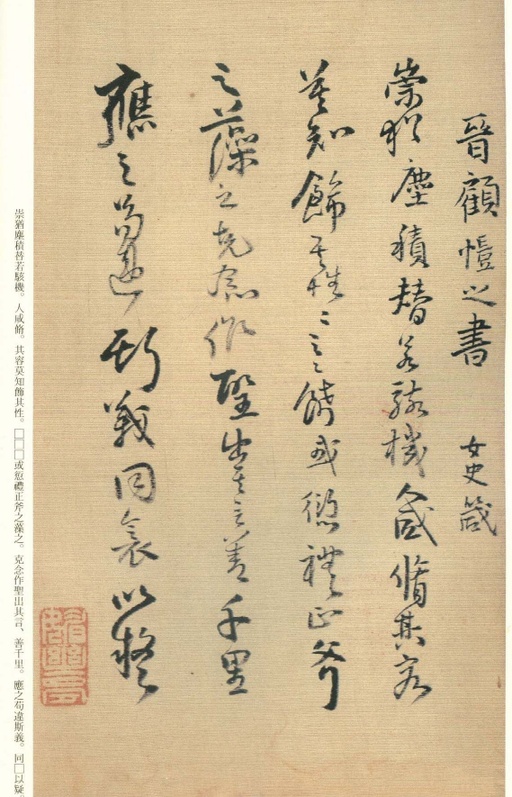 晉顧愷之書 女史箴
崇猶塵積替若駭機人咸脩其容
莫知飾其性〻之飾或愆禮正斧
之藻之克念作聖出其言善千里
應之苟違斯義同衾以疑
崇猶塵積替若駭機。人咸脩。其容莫知飾其性。□□□或愆禮正斧之藻之。克念作聖出其言、善千里。應之苟違斯義。同□以疑。